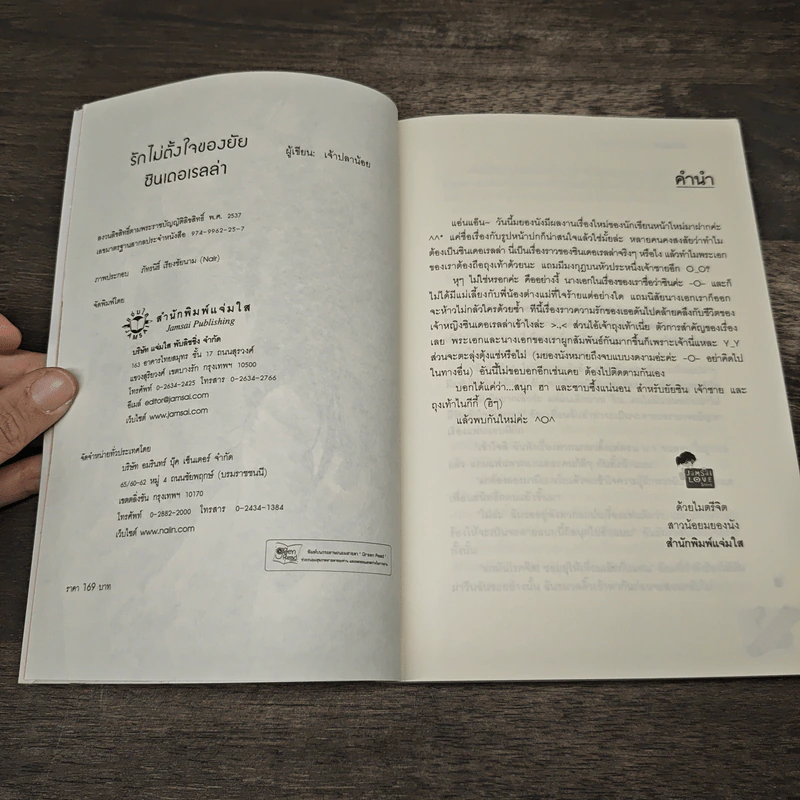 รักไม่ตั้งใจของยัย
ซินเดอเรลล่า
ผู้เขียน: เจ้าปลาน้อย
สงวนลิขสิทธิ์ตามพระราชบัญญัติลิขสิทธิ์ พ.ศ. 2537
เลขมาตรฐานสากลประจำหนังสือ 974-9962-25-7
ภาพประกอบ ภัทรนิธิ์ เรียงชัยนาม (Nair)
จัดพิมพ์โดย
สำนักพิมพ์แจ่มใส
Jamsai Publishing
บริษัท แจ่มใส พับลิชชิ่ง จำกัด
163 อาคารไทยสมุทร ชั้น 17 ถนนสุรวงศ์
แขวงสุริยวงศ์ เขตบางรัก กรุงเทพฯ 10500
โทรศัพท์ 0-2634-2425 โทรสาร 0-2634-2766
อีเมล์ editor@jamsai.com
เว็บไซต์ www.jamsai.com
จัดจำหน่ายทั่วประเทศโดย
บริษัท อมรินทร์ บุ๊ค เซ็นเตอร์ จำกัด
65/60-62 หมู่ 4 ถนนชัยพฤกษ์ (บรมราชชนนี)
เขตตลิ่งชัน กรุงเทพฯ 10170
โทรศัพท์ 0-2882-2000 โทรสาร 0-2434-1384
เว็บไซต์ www.naiin.com
Green Read
ราคา 169 บาท
คำนำ
แอ่นแอ๊น~ วันนี้มยองนังมีผลงานเรื่องใหม่ของนักเขียนหน้าใหม่มาฝากค่ะ
^^* แค่ชื่อเรื่องกับรูปหน้าปกก็น่าสนใจแล้วใช่มั้ยล่ะ หลายคนคงสงสัยว่าทำไม
ต้องเป็นซินเดอเรลล่า นี่เป็นเรื่องราวของซินเดอเรลล่าจริงๆ หรือไง แล้วทำไมพระเอก
ของเราต้องถือถุงเท้าด้วยนะ แถมมีมงกุฎบนหัวประหนึ่งเจ้าชายอีก O_O?
หุๆ ไม่ใช่หรอกค่ะ คืออย่างงี้ นางเอกในเรื่องของเราชื่อว่าซินค่ะ -O- และก็
ไม่ได้มีแม่เลี้ยงกับพี่น้องต่างแม่ที่ใจร้ายแต่อย่างใด แถมนิสัยนางเอกเราก็ออก
จะห้าวไม่กลัวใครด้วยซ้ำ ทีนี้เรื่องราวความรักของเธอดันไปคล้ายคลึงกับชีวิตของ
เจ้าหญิงซินเดอเรลล่าเข้าไงล่ะ >.,< ส่วนไอ้เจ้าถุงเท้าเนี่ย ตัวการสำคัญของเรื่อง
เลย พระเอกและนางเอกของเราผูกสัมพันธ์กันมากขึ้นก็เพราะเจ้านี่แหละ Y_Y
ส่วนจะตะลุ่งตุ้งแช่หรือไม่ (มยองนังหมายถึงจบแบบงดงามอ่ะค่ะ -O- อย่าคิดไป
ในทางอื่น) อันนี้ไม่ขอบอกอีกเช่นเคย ต้องไปติดตามกันเอง
บอกได้แค่ว่า...สนุก ฮา และซาบซึ้งแน่นอน สำหรับยัยซิน เจ้าชาย และ
ถุงเท้าไนกี้กี้ (ฮิๆ)
แล้วพบกันใหม่ค่ะ ^O^
JAMSAI
LOVE
ด้วยไมตรีจิต
สาวน้อยมยองนัง
สำนักพิมพ์แจ่มใส